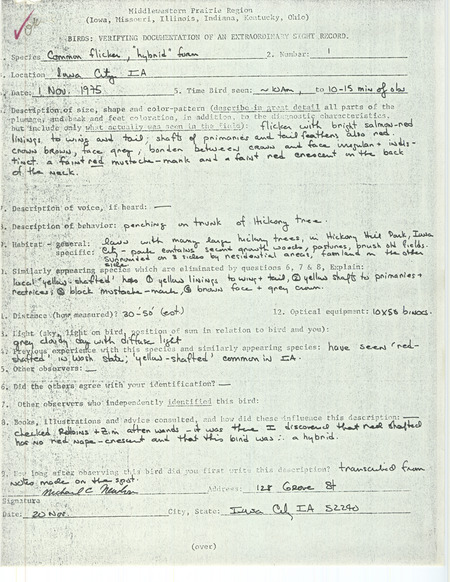 Midwestern Prairie Region
(Iowa, Missouri, Illinois, Indiana, Kentucky, Ohio)
BIRDS: VERIFYING DOCUMENTATION OF AN EXTRAORDINARY SIGHT RECORD.
. Species Common flicker, "hybrid" form 2. Number: 1
. Location Iowa City IA
. Date: 1 Nov. 1975 5. Time Bird seen: ~10AM, to 10-15 min of obs
. Description of size, shape and color-pattern (describe in great detail all parts of the
plumage, and beak and feet coloration, in addition, to the diagnostic characteristics,
but include only what actually was seen in the field): flicker with bright salmon-red
linings to wing and tail, shafts of primaries and tail feathers also red.
crown brown, face grey, border between crown and face irregular + indis-
tinct. a faint red mustache-mark and a faint red crescent in the back
of the neck.
. Description of voice, if heard: —
. Description of behavior: perching on trunk of Hickory tree.
. Habitat - general: lawn with many large hickory trees, in Hickory Hill Park, Iowa
specific: City - park contains second growth woods, pastures, brush old fields.
Surrounded on 3 sides by residential areas, farmland on the other
side.
. Similarly appearing species which are eliminated by questions 6, 7 & 8, Explain:
local 'yellow-shafted' has ① yellow linings to wing + tail, ② yellow shafts to primaries +
rectrices, ③ black mustache-mark, ④ brown face + grey crown.
. Distance (how measured)? 30-50' (est) 12. Optical equipment: 10x50 binocs.
. Light (sky, light on bird, position of sun in relation to bird and you):
grey cloudy day with diffuse light
. Previous experience with this species and similarly appearing species: have seen 'red-
shafted' in Wash state; 'yellow-shafted' common in IA.
5. Other observers: —
6. Did the others agree with your identification? —
7. Other observers who independently identified this bird:
8. Books, illustrations and advice consulted, and how did these influence this description:
checked Robbins + Zim afterwards - it was there I discovered that red shafted
has no red nape-crescent and that this bird was ∴ a hybrid.
9. How long after observing this bird did you first write this description? transcribed from
notes made on the spot.
Michael C. Newlon Address: 128 Grove St
Signature
Date: 20 Nov. City, State: Iowa City IA 52240
(over)